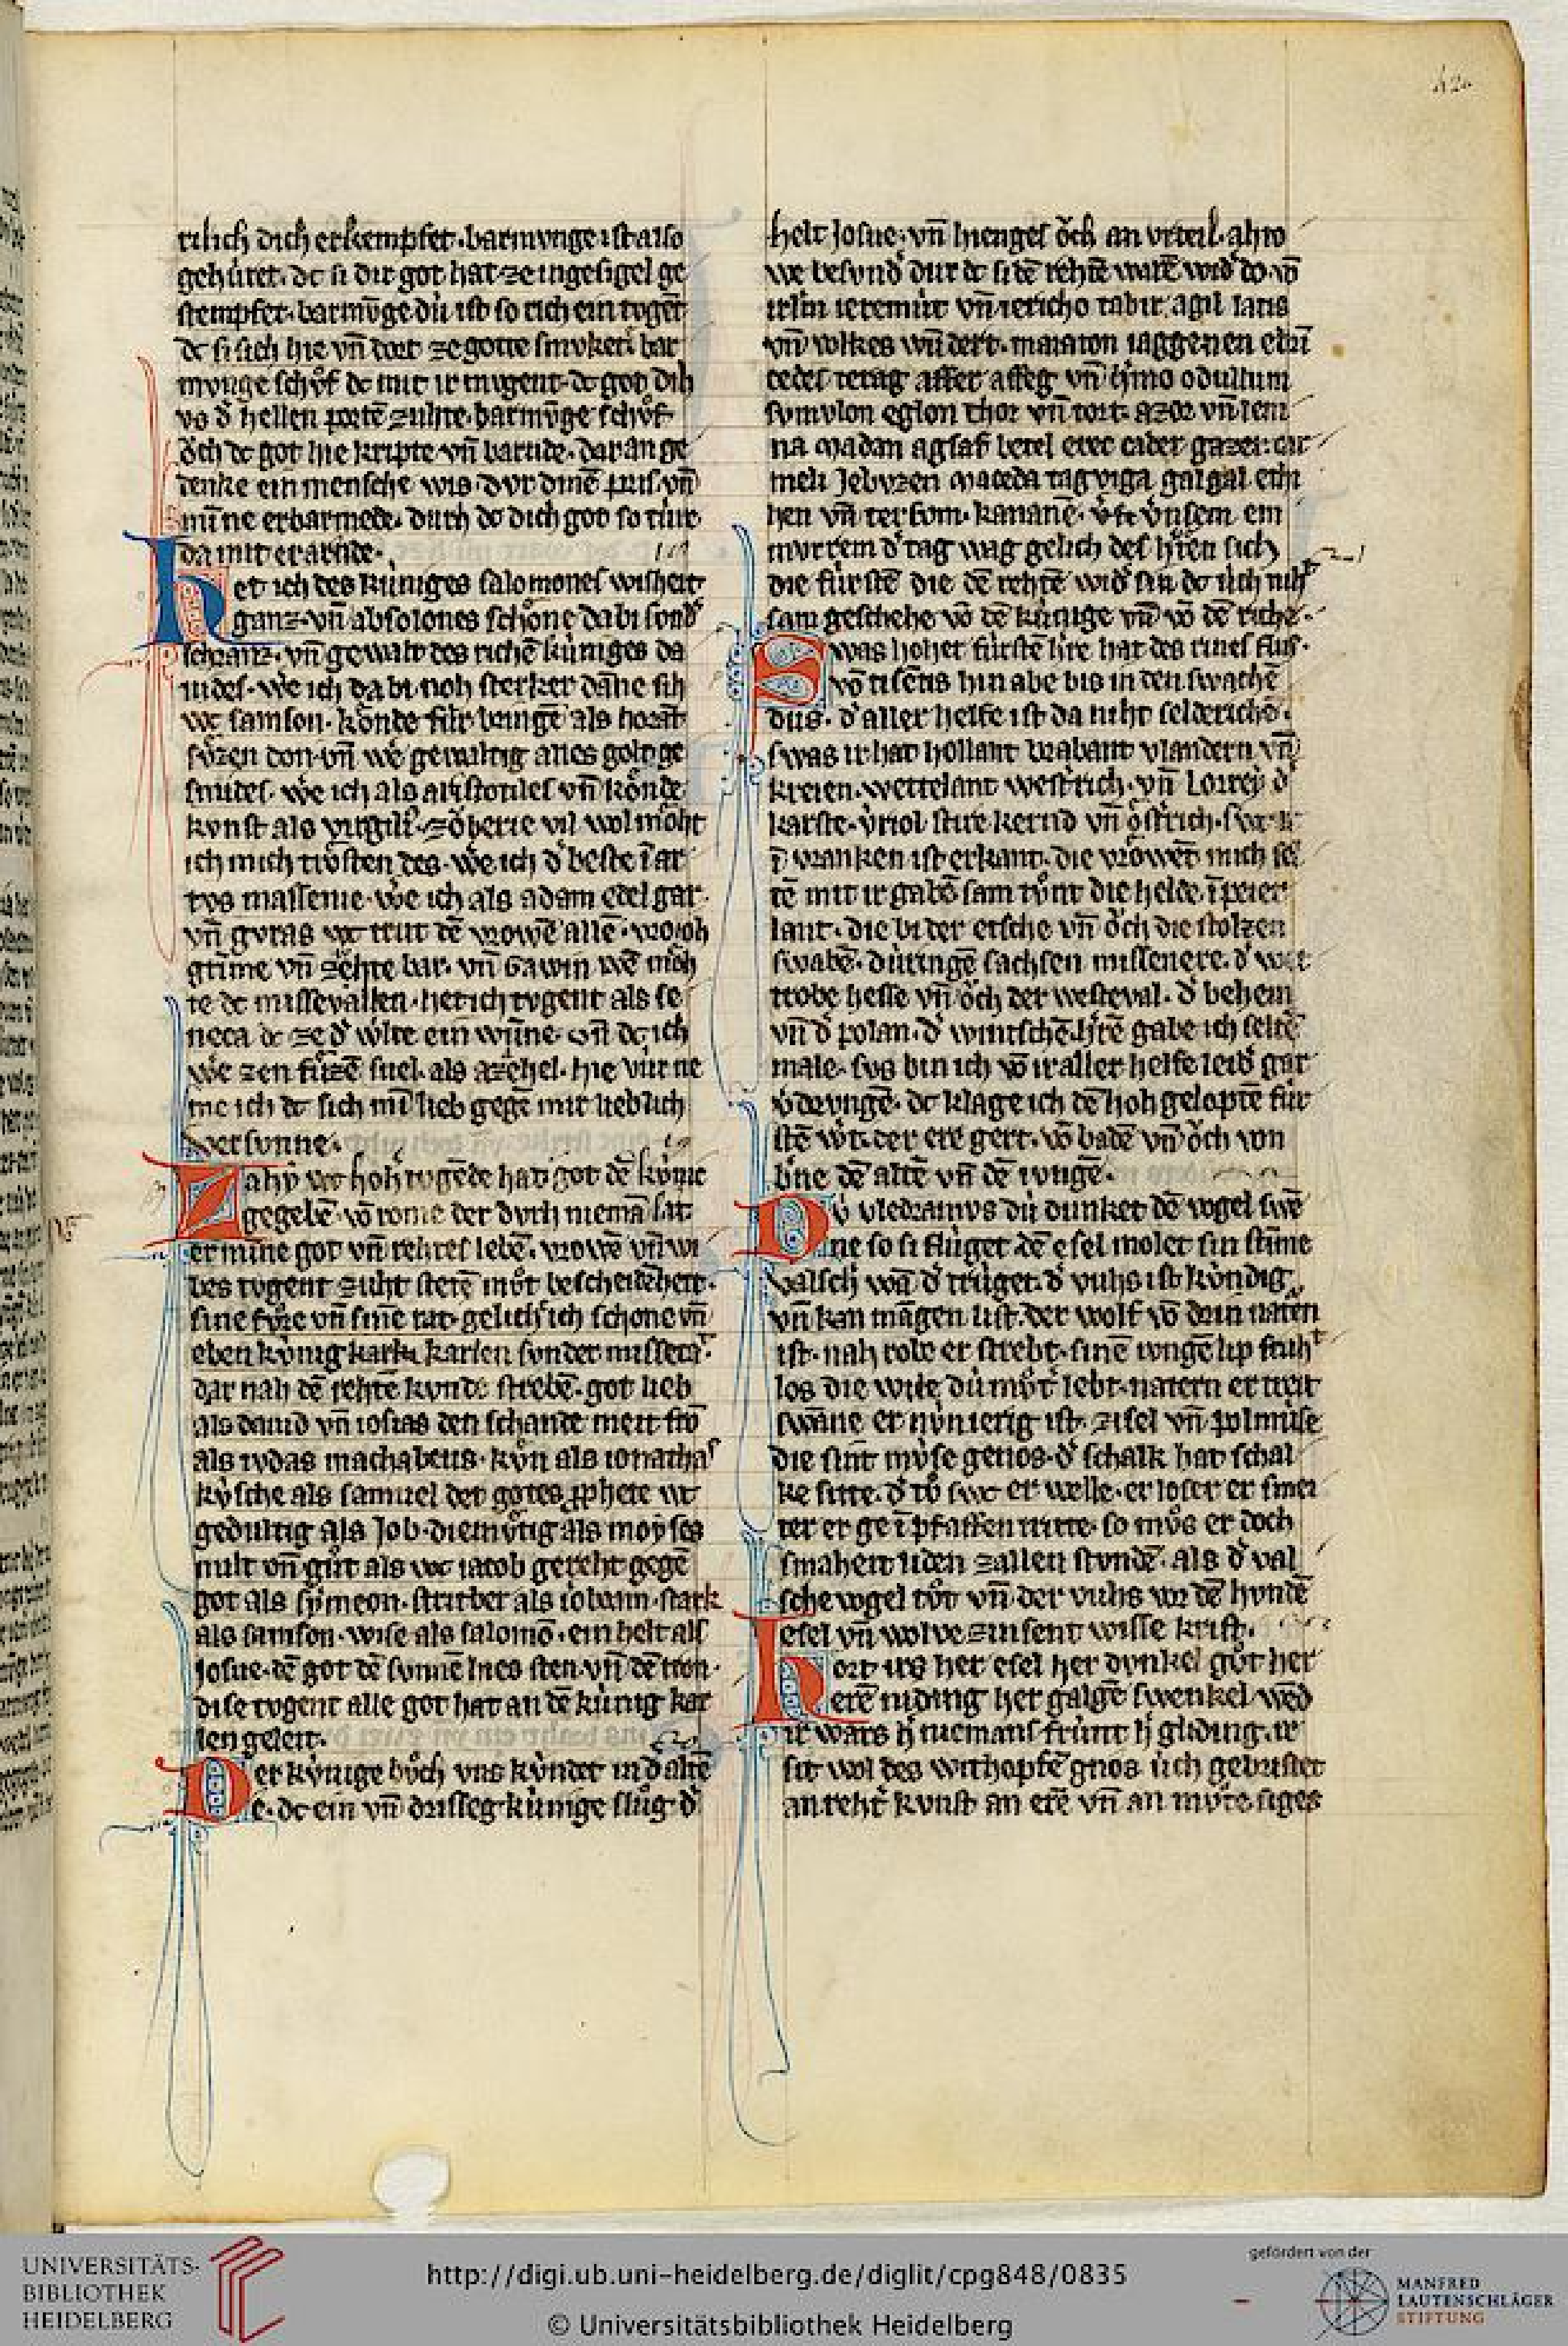 420
rilich dich erkempfet·barmvnge ist also
gehúret·dc si dir got hat ze ingesigel ge
stempfet·barmv̄ge dú ist so rich ein tvgēt
dc si sich hie vn̄ dort ze gotte smvket·bar
mvnge schv̊f dc mit ir mvgent·dc got dih
vs d' hellen portē zuhte·barmv̄ge schv̊f
o̊ch dc got hie kripte vn̄ barnde·dar an ge
denke ein mensche wis·dvr dinē pris·vn̄
mīne erbarmede·durch dc dich got so túr
da mit erarnde·
Het ich des kúniges salomones wisheit
ganz·vn̄ absolones schöne da bi sond'
schranz·vn̄ gewalt des richē kúniges da
uides·we ich da bi noh sterker dāne sih
wc samson·könde fúr bringē als horāt
sv̊zen don·vn̄ we gewaltig alles goltge
smides·we ich als aristotiles vn̄ könde
kvnst als virgili'·zöberie vil wol möht
ich mich trösten des·we ich d' beste ī ar
tvs massenie·we ich als adam edel gar·
vn̄ gvras wc trut dē vrowē allē·
grime vn̄ zehte bar·vn̄ Gawin wē möh
te dc missevallen·het ich tvgent als se
neca dc ze d' wlte ein wūne·vn̄ dc ich
we zen fúzē snel·als azahel·hie vúr ne
me ich dc sich mī lieb gegē mir lieblich
versunne·
Zahy wc hoh' tvgēde hat got dē kúnic
gegebē·vō rome der dvrh niemā lat
er mīne got vn̄ rehtes lebē·vrowē vn̄ wi
bes tvgent zuht stetē mv̊t bescheidēheit·
sine fv̊re vn̄ sinē rat·gelich' ich schone vn̄
eben kúnig karln karlen sunder missetat·
dar nah dē rehtē kvnde strebē·got lieb
als dauid vn̄ iosias den schande meit fro
als ivdas machabeus·kv̊n als ionathas
kúsche als samuel der gotes pphete wc
gedultig als Job·diemv̊tig als moyses
milt vn̄ gv̊t als wc iacob gereht gegē
got als symeon·stritber als iobann·stark
als samson·wise als salomō·ein helt als
Josue·dē got dē svnnē lies sten·vn̄ dē tron·
dise tvgent alle got hat an dē kúnig kar
len geleit·
Der kúnige bv̊ch vns kúndet in d' altē
e·dc ein vn̄ drisseg kúnige slv̊g d'
helt Josue·vn̄ hienges o̊ch an vrteil·ahio
we besvnd' dur dc si dē rehtē warē wid' do·vō
irlm ieremúr vn̄ iericho tabir agil laris
vn̄ volkes wn̄dert·maraton iaggenen ebrī
cedes terag affer affeg vn̄ tymo odullum
symvlon eglon thor vn̄ tort·azor vn̄ lem
na madan agsaf betel erec eider gazer·car
meli Jebvzen maceda tagviga galgal ethi
hen vn̄ tersom·kananē·
mvrrem d' tag wag gelich des hren sich
die fúrstē die dē rehtē wid' sin dc úch niht
sam geschehe vō dē kúnige vn̄ vō dē riche·
Swas hoher fúrstē ere hat des rines flus·
vō tisētis hin abe bis in den swachē
dus·d' aller helfe ist da niht selderiche·
swas ir hat hollant brabant vlandern vn̄
kreien·wettelant westrich·vn̄ Lorrey d'
karste·v̊riol stire kernd vn̄ östrich·swc ir
ī vranken ist erkant·die vröwēt mich sel
tē mit ir gabē sam tv̊nt die helde·ī peier
lant·die bi der etsche vn̄ o̊ch die stolzen
swabē·dúringē sachsen missenere·d' wet
trobe hesse vn̄ o̊ch der westeval·d' behem
vn̄ d' polan·d' wintschē hrē gabe ich seltē
male·svs bin ich vō ir aller helfe leid' gar
v'drvngē·dc klage ich dē hoh geloptē fúr
stē wt·der ere gert·vō badē vn̄ o̊ch von
bne dē altē vn̄ dē ivngē·
Dv vledramvs dú dunket dē vogel swē
ne so si flúget·dē esel molet sin stīme
valsch wā d' trúget·d' vuhs ist kúndig
vn̄ kan māgen list·der wolf vō drin naten
ist·nah robe er strebt·sinē ivngē lip fruht
los die wile dú mv̊t' lebt·natern er treit
swāne er nv̊nierig ist·zisel vn̄ polmúse
die sint mv̊se genos·d' schalk hat schal
ke sitte·d' tv̊ swc er welle·er loser er smei
cer er ge ī pfaffen tritte·so mv̊s er doch
smaheit liden zallen stvndē·als d' val
sche vogel tv̊t vn̄·der vuhs vor dē hvndē
esel vn̄ wolve zinsent wisse krist·
Hort irs her esel her dvnkel gv̊t her
erē niding her galgē swenkel·wed'
ir wars h' niemans frúnt h' gliding·ir
sit wol des withopfē gnos úch gebristet
an reht' kvnst an erē vn̄ an mv̊te·siges
UNIVERSITÄTS-
BIBLIOTHEK
HEIDELBERG
http://digi.ub.uni-heidelberg.de/diglit/cpg848/0835
© Universitätsbibliothek Heidelberg
gefördert von der
MANFRED
LAUTENSCHLÄGER
STIFTUNG